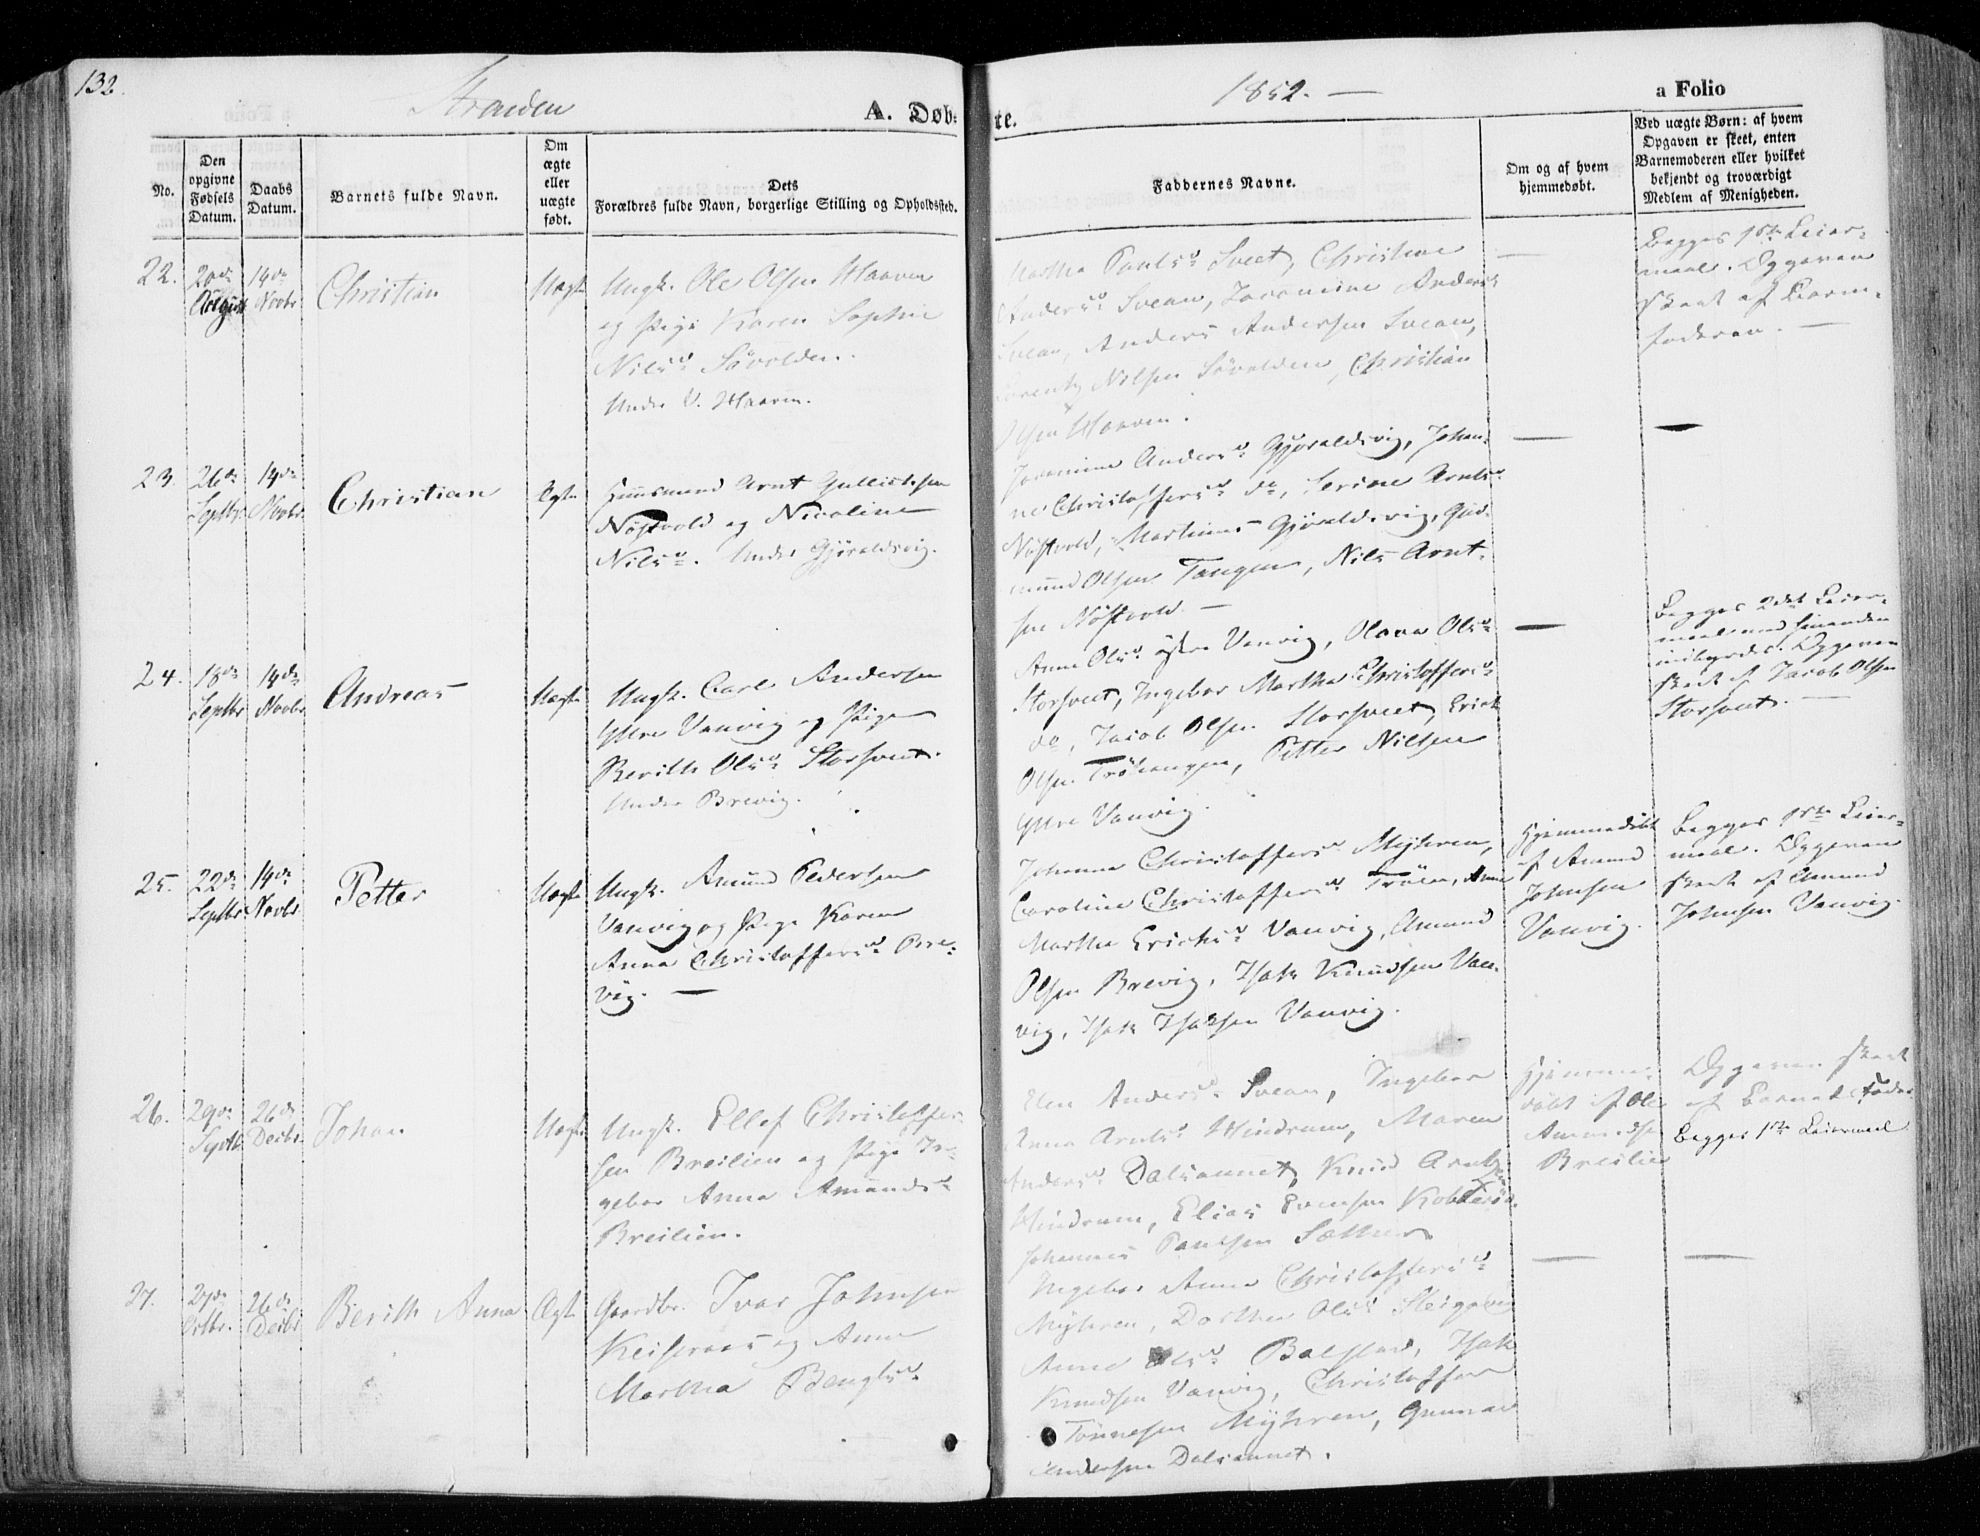 132.
Stranden
A. Døb-
te.
1852. —
a Folio
No.
Den opgivne Fødsels Datum.
Daabs Datum.
Barnets fulde Navn.
Om ægte eller uægte født.
Dets Forældres fulde Navn, borgerlige Stilling og Opholdssted.
Faddernes Navne.
Om og af hvem hjemmedøbt.
Ved uægte Børn: af hvem Opgaven er skeet, enten Barnemoderen eller hvilket bekjendt og troværdigt Medlem af Menigheden.
22.
20de August
14de Novbr
Christian
Uægt
Ungk. Ole Olsen Haaven
og Pige Karen Sophie
Nilsd.
Under V. Haaven.
Martha Paulsd. Sveet, Christine
Andersd. Svean, Joramine Andersd.
Svean, Anders Andersen Svean,
Lorentz Nilsen, Christian
Olsen Haaven.
—
Begges 1ste Leier-
maal. Opgaven
skeet af Barne-
faderen. —
23.
26de Septbr.
14de Novbr.
Christian
Ægte
Huusmand Arnt Gullichsen
Nøstvold og Nicoline
Nilsd. Under Gjøraldsvig.
Joramine Andersd. Gjøraldsvig, Johan-
ne Christoffersd. do, Serine Arntsd.
Nøstvold, Martinus Gjøraldsvig, Gud-
mund Olsen Tangen, Nils Arnt-
sen Nøstvold. —
—
—
24.
18de Septbr
14de Novbr.
Andreas
Uægte
Ungk. Carl Andersen
Yttre Vanvig og Pige
Berith Olsd. Storsveet.
Under Brevig.
Anne Olsd. ytre Vanvig, Olava Olsd.
Storsveet, Ingebor Martha Christoffersd.
do, Jacob Olsen Storsveet, Erick
Olsen Trøhaugen, Petter Nilsen
Yttre Vanvig.
—
Begges 2det Leier-
maal med hinanden
indbyrdes. Opgaven
skeet af Jacob Olsen
Storsveet. —
25.
22de Septbr.
14de Novbr.
Petter
Uægte
Ungk. Amund Pedersen
Vanvig og Pige Karen
Anna Christoffersd. Bre-
vig. —
Johanna Christoffersd. Myhren,
Caroline Christoffersd. Trøen, Anne
Martha Erichsd. Vanvig, Amund
Olsen Brevig, Isak Knudsen Van-
vig, Isak Isaksen Vanvig.
Hjemmedøbt
af Amund
Johnsen
Vanvig.
Begges 1ste Leier-
maal. Opgaven
skeet af Amund
Johnsen Vanvig.
26.
29de Septbr.
26de Decbr.
Johan
Uægte
Ungk. Ellef Christoffer-
sen Breilien og Pige In-
gebor Anna Amundsd.
Breilien.
Elen Andersd. Svean, Ingebor
Anna Arntsd. Hindrum, Maren
Andersd. Dalsaunet, Knud Arntz.
Hindrum, Elias Evensen,
Johannes Paulsen Sæther
Hjemme-
døbt af Ole
Amundsen
Breilien
Opgaven skeet
af Barnets Fader
Begges 1ste Leiermaal
27.
29de Octbr.
26de Decbr.
Berith Anna
Ægte
Gaardbr. Ivar Johnsen
Keiseraas og Anne
Martha Bengtsd.
Ingebor Anna Christoffersd.
Myhren, Dorthea Olsd.
Anne Olsd. Balstad, Isak
Knudsen Vanvig, Christoffer
Tønnesen Myhren, Gunnar
Andersen Dalsaunet.
—
—